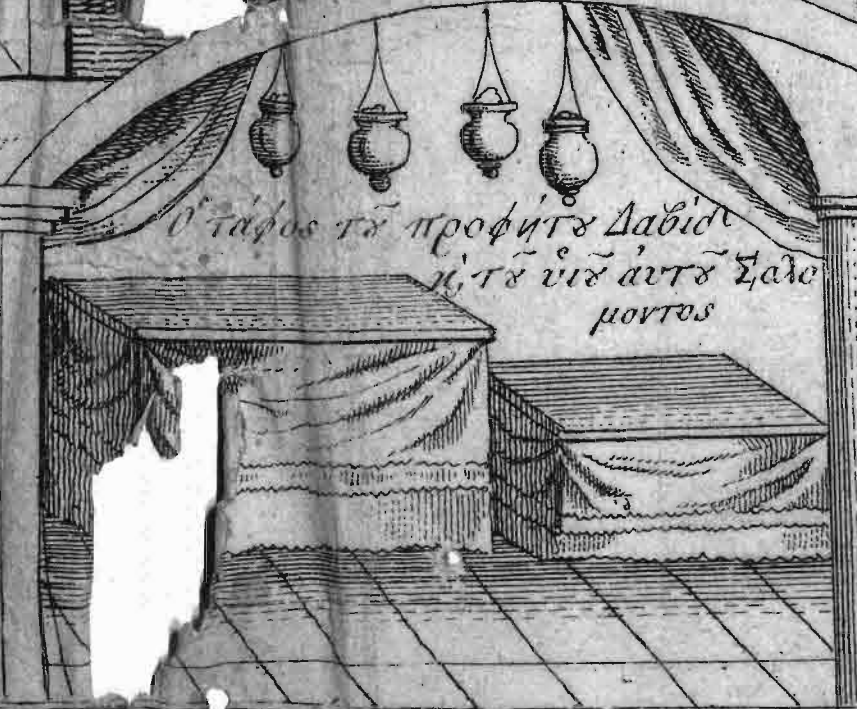 Ὁ τάφος τȣ͂ προφήτȣ Δαβὶδ
ϗ̀ τȣ͂ ὑιȣ͂ ἀυτȣ͂ Σαλο
μοντος